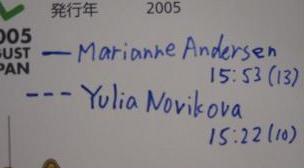 発行年 2005
005
GUST
PAN
— Marianne Andersen
15:53 (13)
--- Yulia Novikova
15:22 (10)